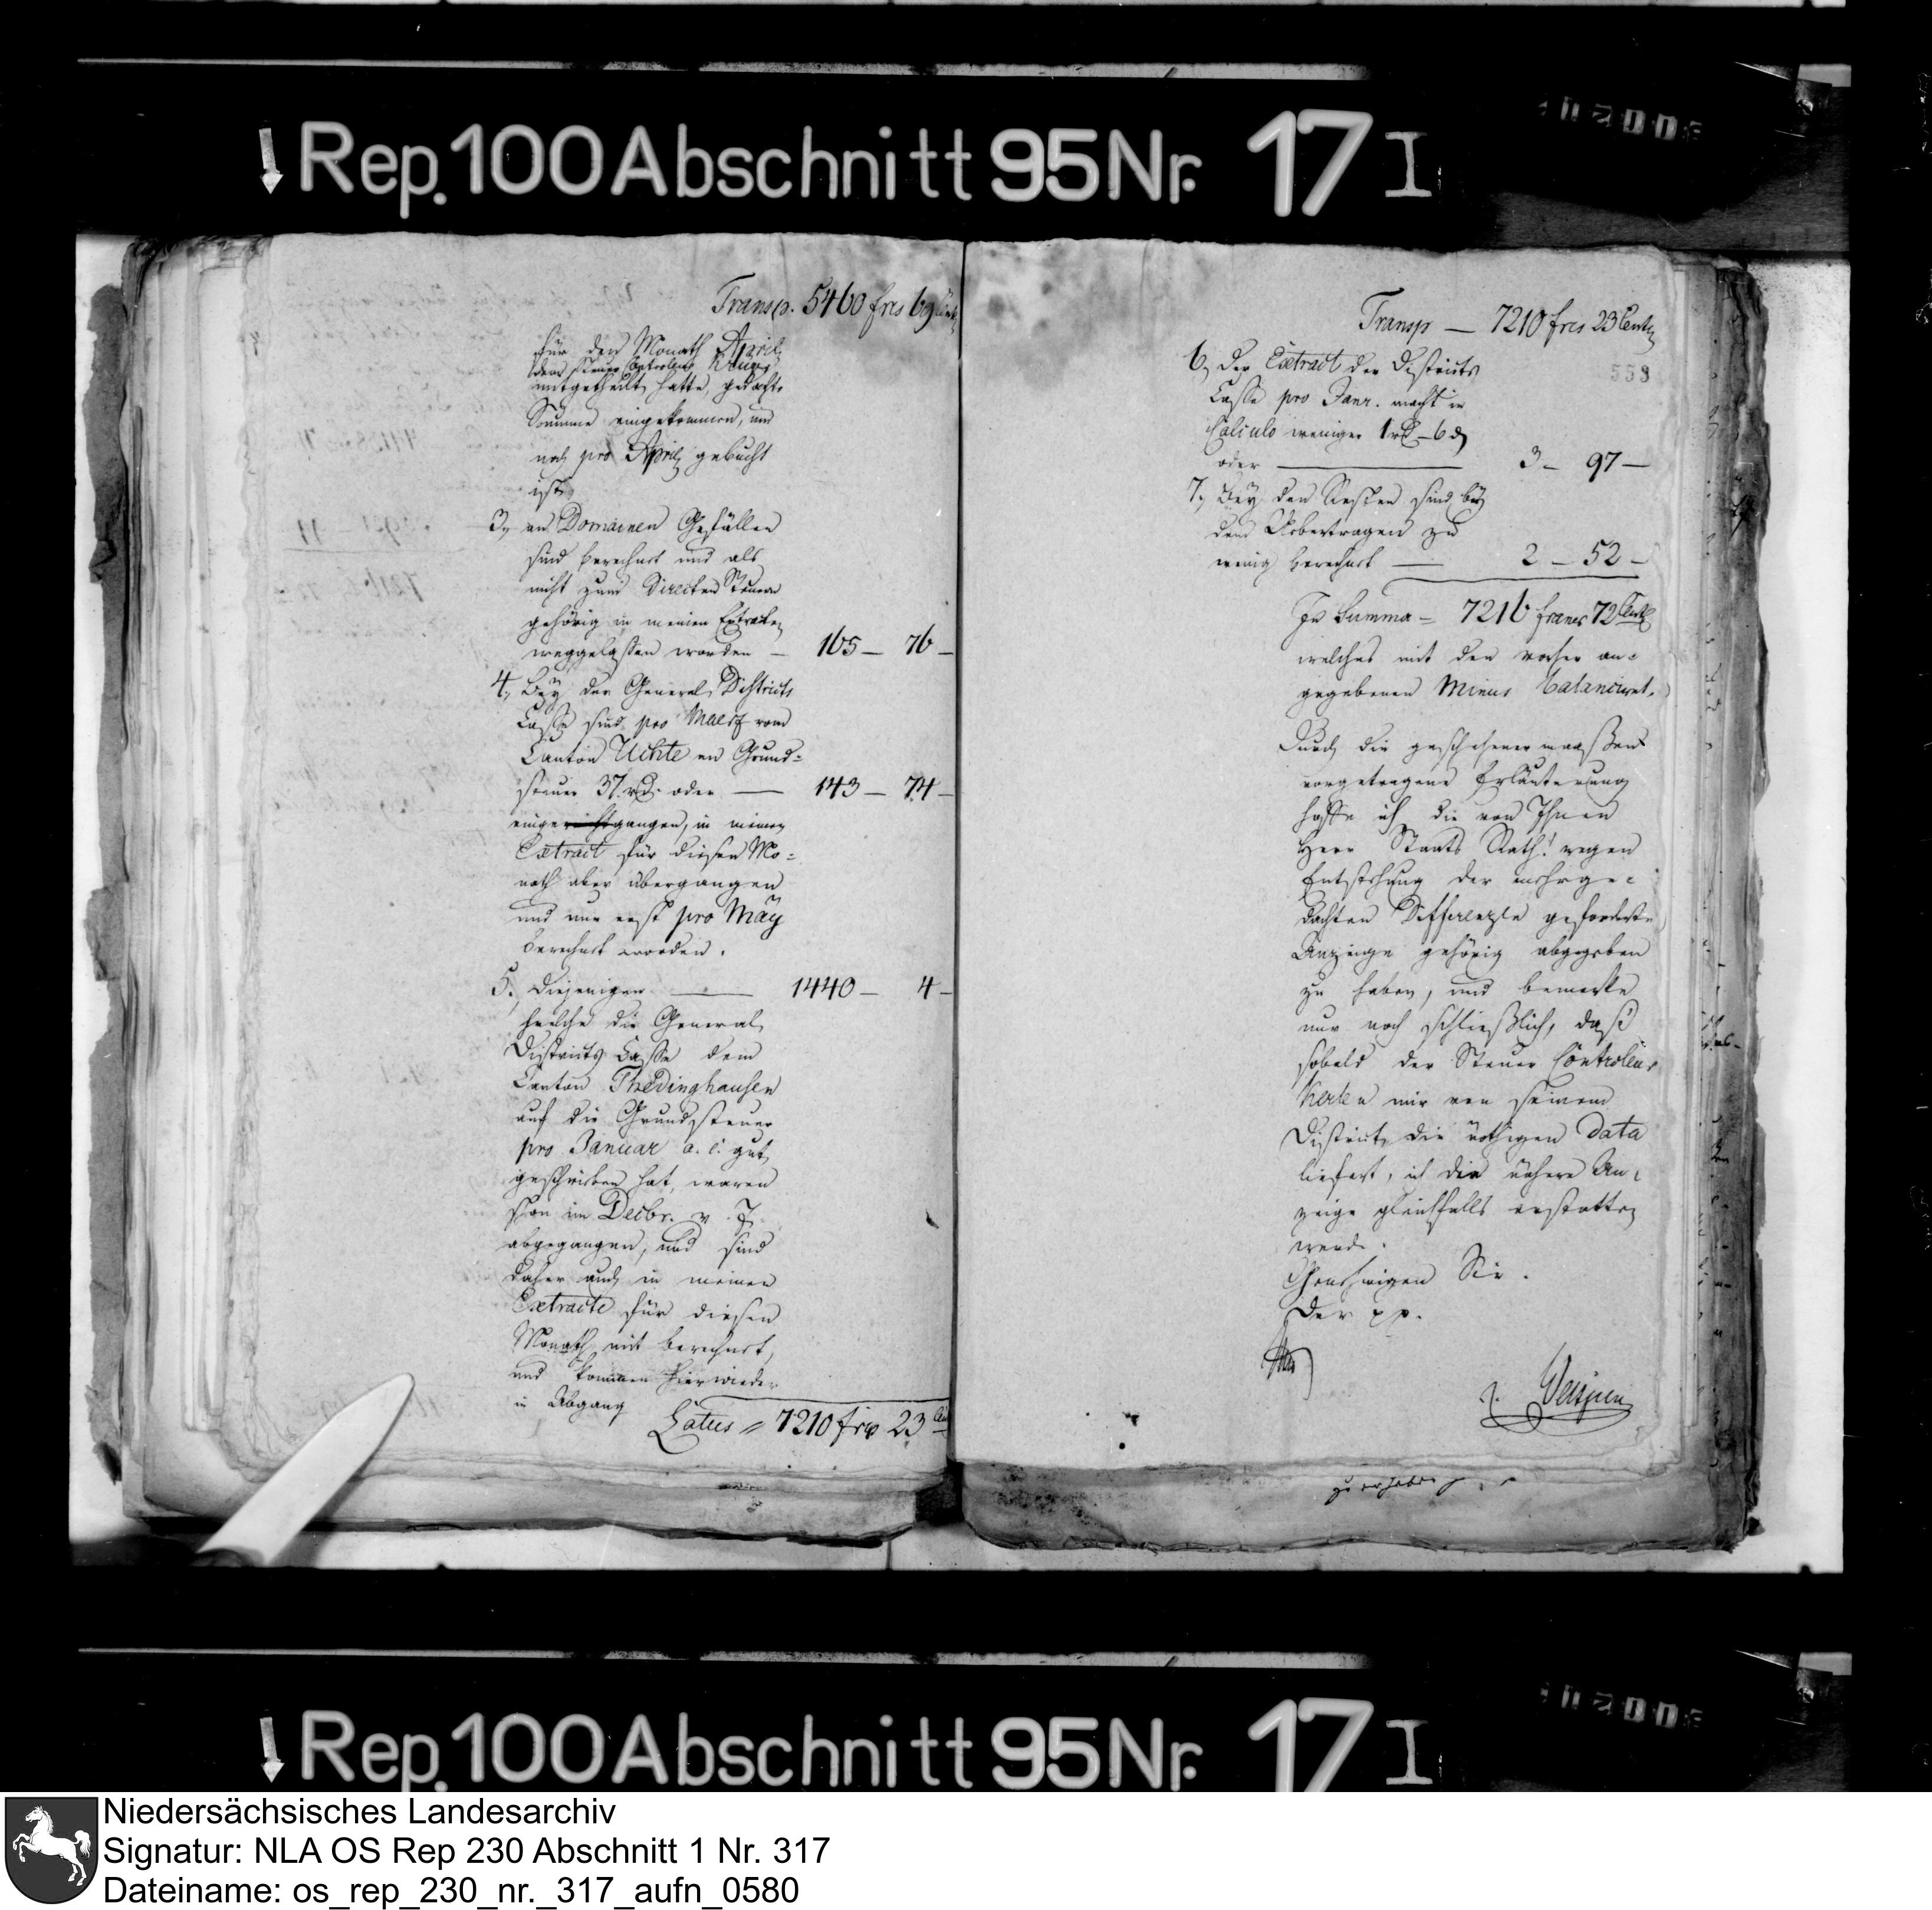 Rep. 100 Abschnitt 95 Nr. 17 I
Transp. 5460 frcs 69 Cent
für den Monath April
dem Steuer Controleur
mitgetheilt hatte, gedachte
Summe eingekommen, und
noch pro April gebucht
ist.
3, an Domainen Gefällen
sind berechnet und als
nicht zum Directen Steuern
gehörig in meinen Extracten
weggelaßen worden — 165 — 76 —
4, Bey der General Districts
Casse sind pro Maerz vom
Canton Uchte an Grund=
steuer 37. rd oder — 143 — 74 —
eingegangen, in meinen
Extract für diesen Mo=
nath aber übergangen
und nur erst pro May
berechnet worden.
5, diejenigen — 1440 — 4 —
welche die General
Districts Casse dem
Canton Thedinghausen
auf die Grundsteuer
pro Januar a. c. gut
geschrieben hat, waren
schon im Decbr. v. J.
abgegangen, und sind
daher auch in meinem
Extracte für diesen
Monath mit berechnet,
und kommen hier wieder
in Abgang
Latus = 7210 frcs 23 Cent
Transp — 7210 frcs 23 Cent
558
6, Der Extract der Districts
Casse pro Janr. macht in
Calculo weniger 1 rd — 6 d
oder — 3 — 97 —
7, Bey den Resten sind bey
dem Uebertragen zu
wenig berechnet — 2 — 52 —
In Summa = 7216 francs 72 Cent
welches mit den vorher an=
gegebenen Minus balanciret.
Durch die geschehenermaaßen
vorgetragene Erläuterung
hoffe ich die von Ihnen
Herr Staats Rath! wegen
Entstehung der mehrge=
dachten Differenzen geforderte
Anzeige gehörig abgegeben
zu haben, und bemerke
nur noch schließlich, daß
sobald der Steuer Controleur
mir von seinem
District die nöthigen Data
liefert, ich die nähere An=
zeige gleichfalls erstatten
werde.
Genehmigen Sie.
Der pp.
zu erheben
Rep. 100 Abschnitt 95 Nr. 17 I
Niedersächsisches Landesarchiv
Signatur: NLA OS Rep 230 Abschnitt 1 Nr. 317
Dateiname: os_rep_230_nr._317_aufn_0580